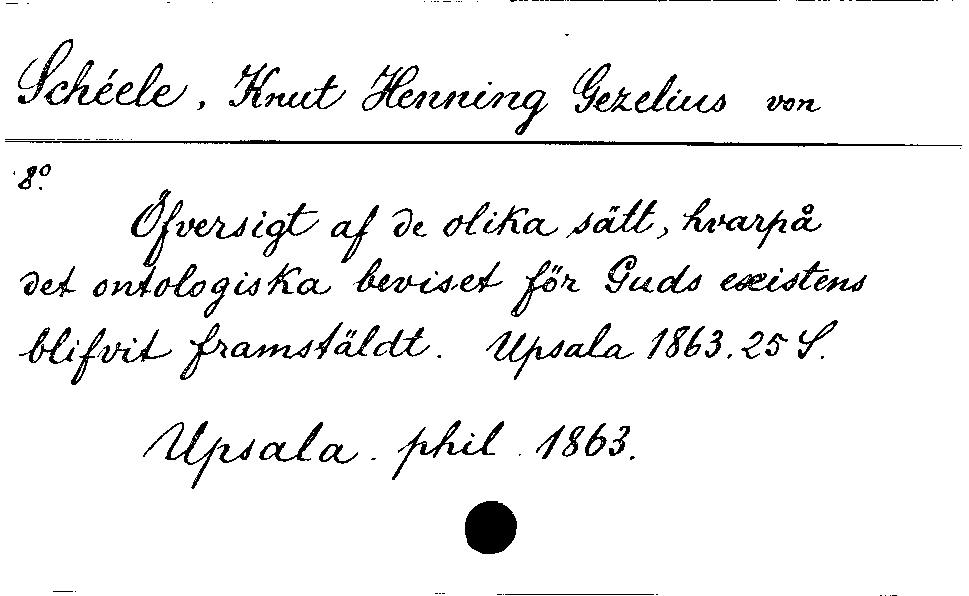 Schéele, Knut Henning Gezelius von
8º.
Öfversigt af de olika sätt, hvarpå
det ontologiska beviset för Guds existens
blifvit framstäldt. Upsala 1863. 25 S.
Upsala. phil. 1863.